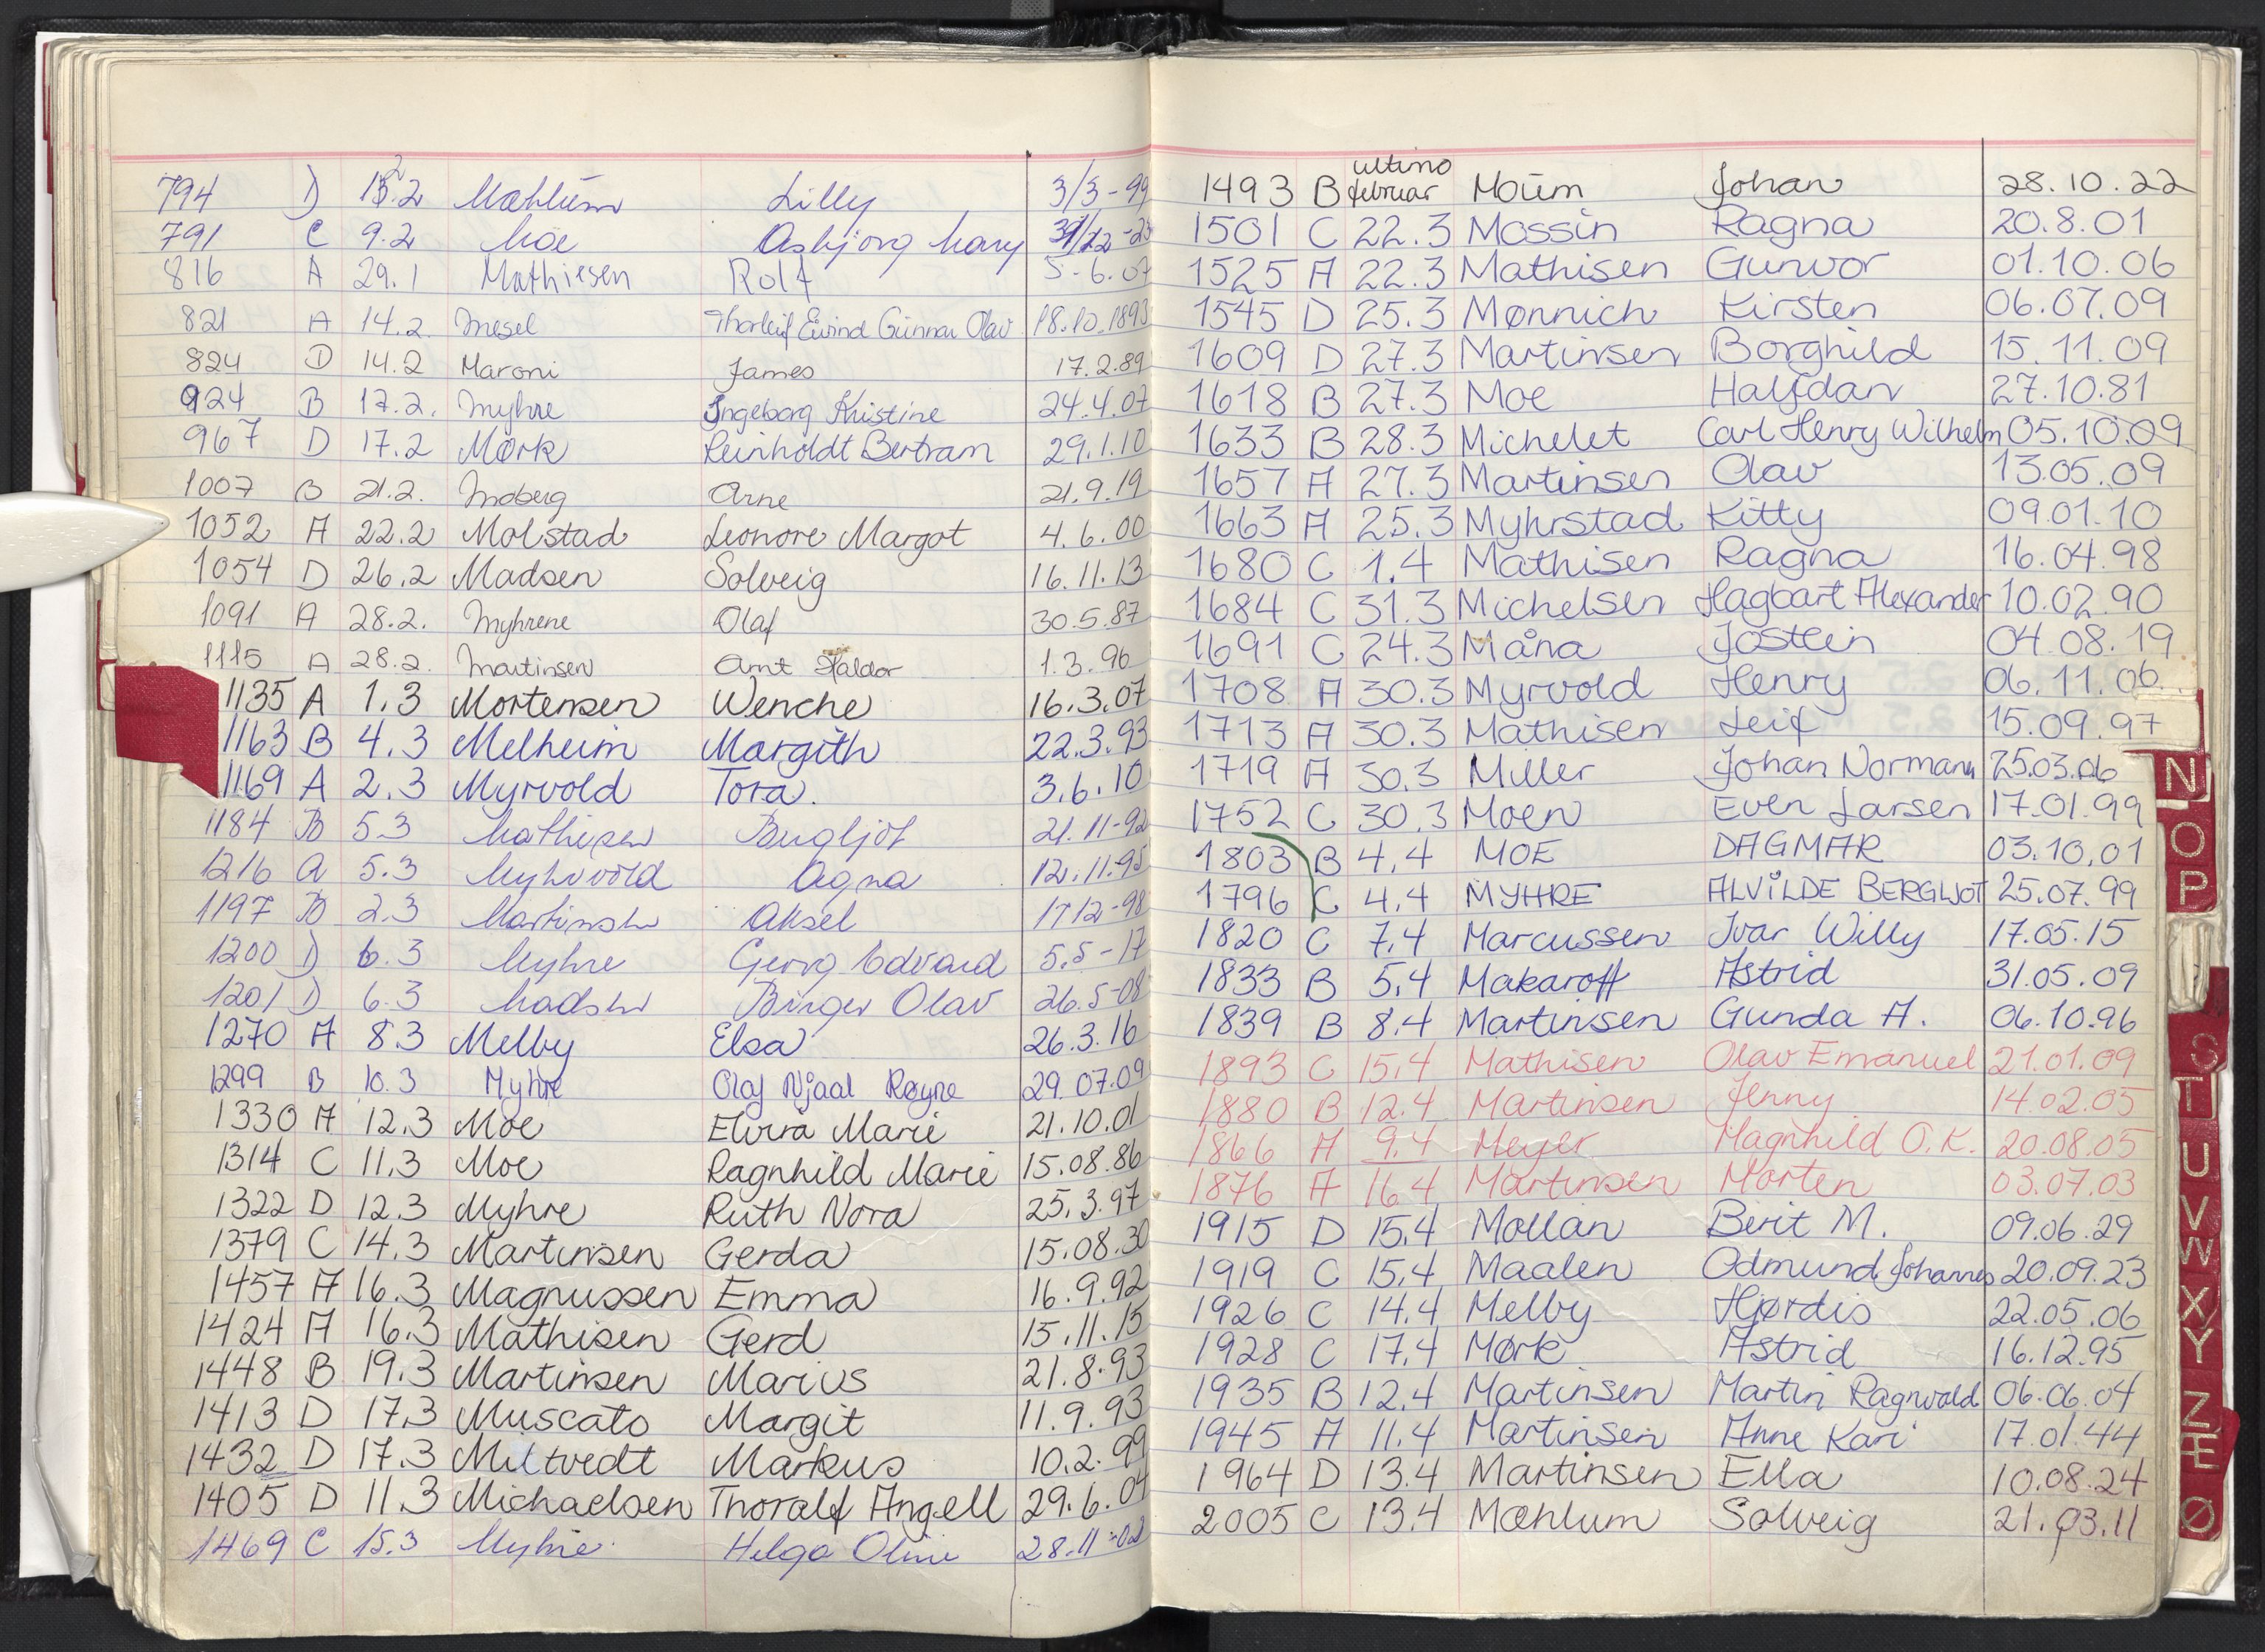 794 D 13.2 Mæhlum Lilly 3/3-99
791 C 9.2 Moe Asbjørg Mary 31/12-23
816 A 29.1 Mathiesen Rolf 5-6.07
821 A 14.2 Mesel Thorleif Eivind Gunnar Olav 18.10.1893
824 D 14.2 Maroni James 17.2.89
924 B 17.2. Myhre Ingeborg Kristine 24.4.07
967 D 17.2 Mørk Reinholdt Bertram 29.1.10
1007 B 21.2. Moberg Arne 21.9.19
1052 A 22.2 Molstad Leonore Margot 4.6.00
1054 D 26.2 Madsen Solveig 16.11.13
1091 A 28.2. Myhrene Olaf 30.5.87
1115 A 28.2. Martinsen Arnt Haldor 1.3.96
1135 A 1.3 Mortensen Wenche 16.3.07
1163 B 4.3 Melheim Margith 22.3.93
1169 A 2.3 Myrvold Tora. 3.6.10
1184 B 5.3 Mathisen Bergljot 21.11-92
1216 A 5.3 Myhrvold Agna 12.11.95
1197 B 2.3 Martinsen Aksel 17.12-98
1200 D 6.3 Myhre Georg Edvard 5.5-17
1201 D 6.3 Madsen Birger Olav 26.5-08
1270 A 8.3 Melby Elsa 26.3.16
1299 B 10.3 Myhre Olaf Njaal Røyne 29.07.09
1330 A 12.3 Moe Elvira Marie 21.10.01
1314 C 11.3 Moe Ragnhild Marie 15.08.86
1322 D 12.3 Myhre Ruth Nora 25.3.97
1379 C 14.3 Martinsen Gerda 15.08.30
1457 A 16.3 Magnussen Emma 16.9.92
1424 A 16.3 Mathisen Gerd 15.11.15
1448 B 19.3 Martinsen Marius 21.8.93
1413 D 17.3 Muscato Margit 11.9.93
1432 D 17.3 Miltvedt Markus 10.2.99
1405 D 11.3 Michaelsen Thoralf Angell 29.6.04
1469 C 15.3 Myhre Helga Oline 28.11-02
1493 B ultimo februar Moum Johan 28.10.22
1501 C 22.3 Mossin Ragna 20.8.01
1525 A 22.3 Mathisen Gunvor 01.10.06
1545 D 25.3 Mønnich Kirsten 06.07.09
1609 D 27.3 Martinsen Borghild 15.11.09
1618 B 27.3 Moe Halfdan 27.10.81
1633 B 28.3 Michelet Carl Henry Wilhelm 05.10.09
1657 A 27.3 Martinsen Olav 13.05.09
1663 A 25.3 Myhrstad Kitty 09.01.10
1680 C 1.4 Mathisen Ragna 16.04.98
1684 C 31.3 Michelsen Hagbart Alexander 10.02.90
1691 C 24.3 Måna Jostein 04.08.19
1708 A 30.3 Myrvold Henry 06.11.06
1713 A 30.3 Mathisen Leif 15.09.97
1719 A 30.3 Miller Johan Normann 25.03.06
1752 C 30.3 Moen Even Larsen 17.01.99
1803 B 4.4 MOE DAGMAR 03.10.01
1796 C 4.4 MYHRE ALVILDE BERGLJOT 25.07.99
1820 C 7.4 Marcussen Ivar Willy 17.05.15
1833 B 5.4 Makaroff Astrid 31.05.09
1839 B 8.4 Martinsen Gunda A. 06.10.96
1893 C 15.4 Mathisen Olav Emanuel 21.01.09
1880 B 12.4 Martinsen Jenny 14.02.05
1866 A 9.4 Meyer Magnhild O.K. 20.08.05
1876 A 16.4 Martinsen Morten 03.07.03
1915 D 15.4 Mollan Berit M. 09.06.29
1919 C 15.4 Maalen Odmund Johannes 20.09.23
1926 C 14.4 Melby Hjørdis 22.05.06
1928 C 17.4 Mørk Astrid 16.12.95
1935 B 12.4 Martinsen Martin Ragnvald 06.06.04
1945 A 11.4 Martinsen Anne Kari 17.01.44
1964 D 13.4 Martinsen Ella 10.08.24
2005 C 13.4 Mæhlum Solveig 21.03.11
N
O
P
S
T
U
V
W
X
Y
Z
Æ
Ø